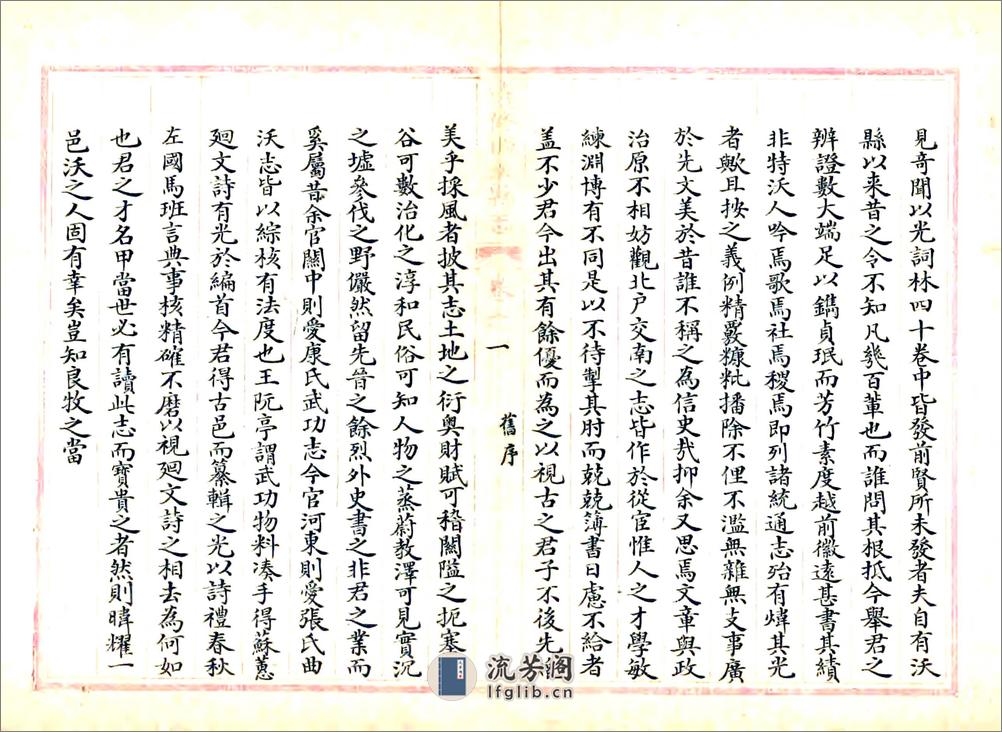 見奇聞以光詞林四十卷中皆發前賢所未發者夫自有沃
縣以來昔之令不知凡幾百輩也而誰問其根抵今舉君之
辨證數大端足以鐫貞珉而芳竹素度越前徽遠甚書其績
非特沃人吟焉歌焉社焉稷焉即列諸統通志殆有煒其光
者歟且按之義例精覈糠粃播除不俚不濫無雜無支事廣
於先文美於昔誰不稱之為信史㢤抑余又思焉文章與政
治原不相妨觀北户交南之志皆作於從宦惟人之才學敏
練淵博有不同是以不待掣其肘而兢兢簿書日慮不給者
盖不少君今出其有餘優而為之以視古之君子不後先
舊序
一
美乎採風者披其志土地之衍奥財賦可稽關隘之扼塞
谷可數治化之淳和民俗可知人物之蒸蔚教澤可見實沉
之墟參伐之野儼然留先晉之餘烈外史書之非君之業而
奚屬昔余官關中則愛康氏武功志今官河東則愛張氏曲
沃志皆以綜核有法度也王阮亭謂武功物料凑手得蘇蕙
廻文詩有光於編首今君得古邑而纂輯之光以詩禮春秋
左國馬班言典事核精確不磨以視廻文詩之相去為何如
也君之才名甲當世必有讀此志而寶貴之者然則暐耀一
邑沃之人固有幸矣豈知良牧之當
流芳阁
lfglib.cn